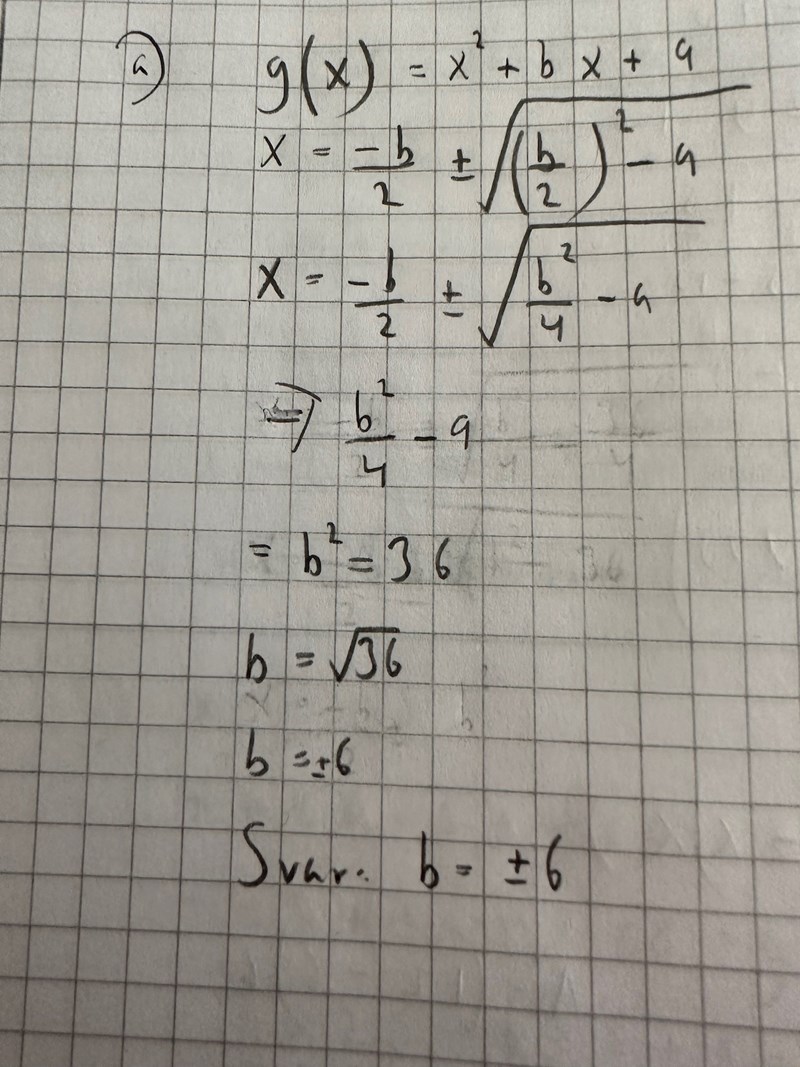 a) g(x) = x² + b x + 9
x = -b/2 ± √((b/2)² - 9)
x = -b/2 ± √(b²/4 - 9)
⇒ b²/4 - 9
= b² = 36
b = √36
b = ±6
Svar: b = ±6